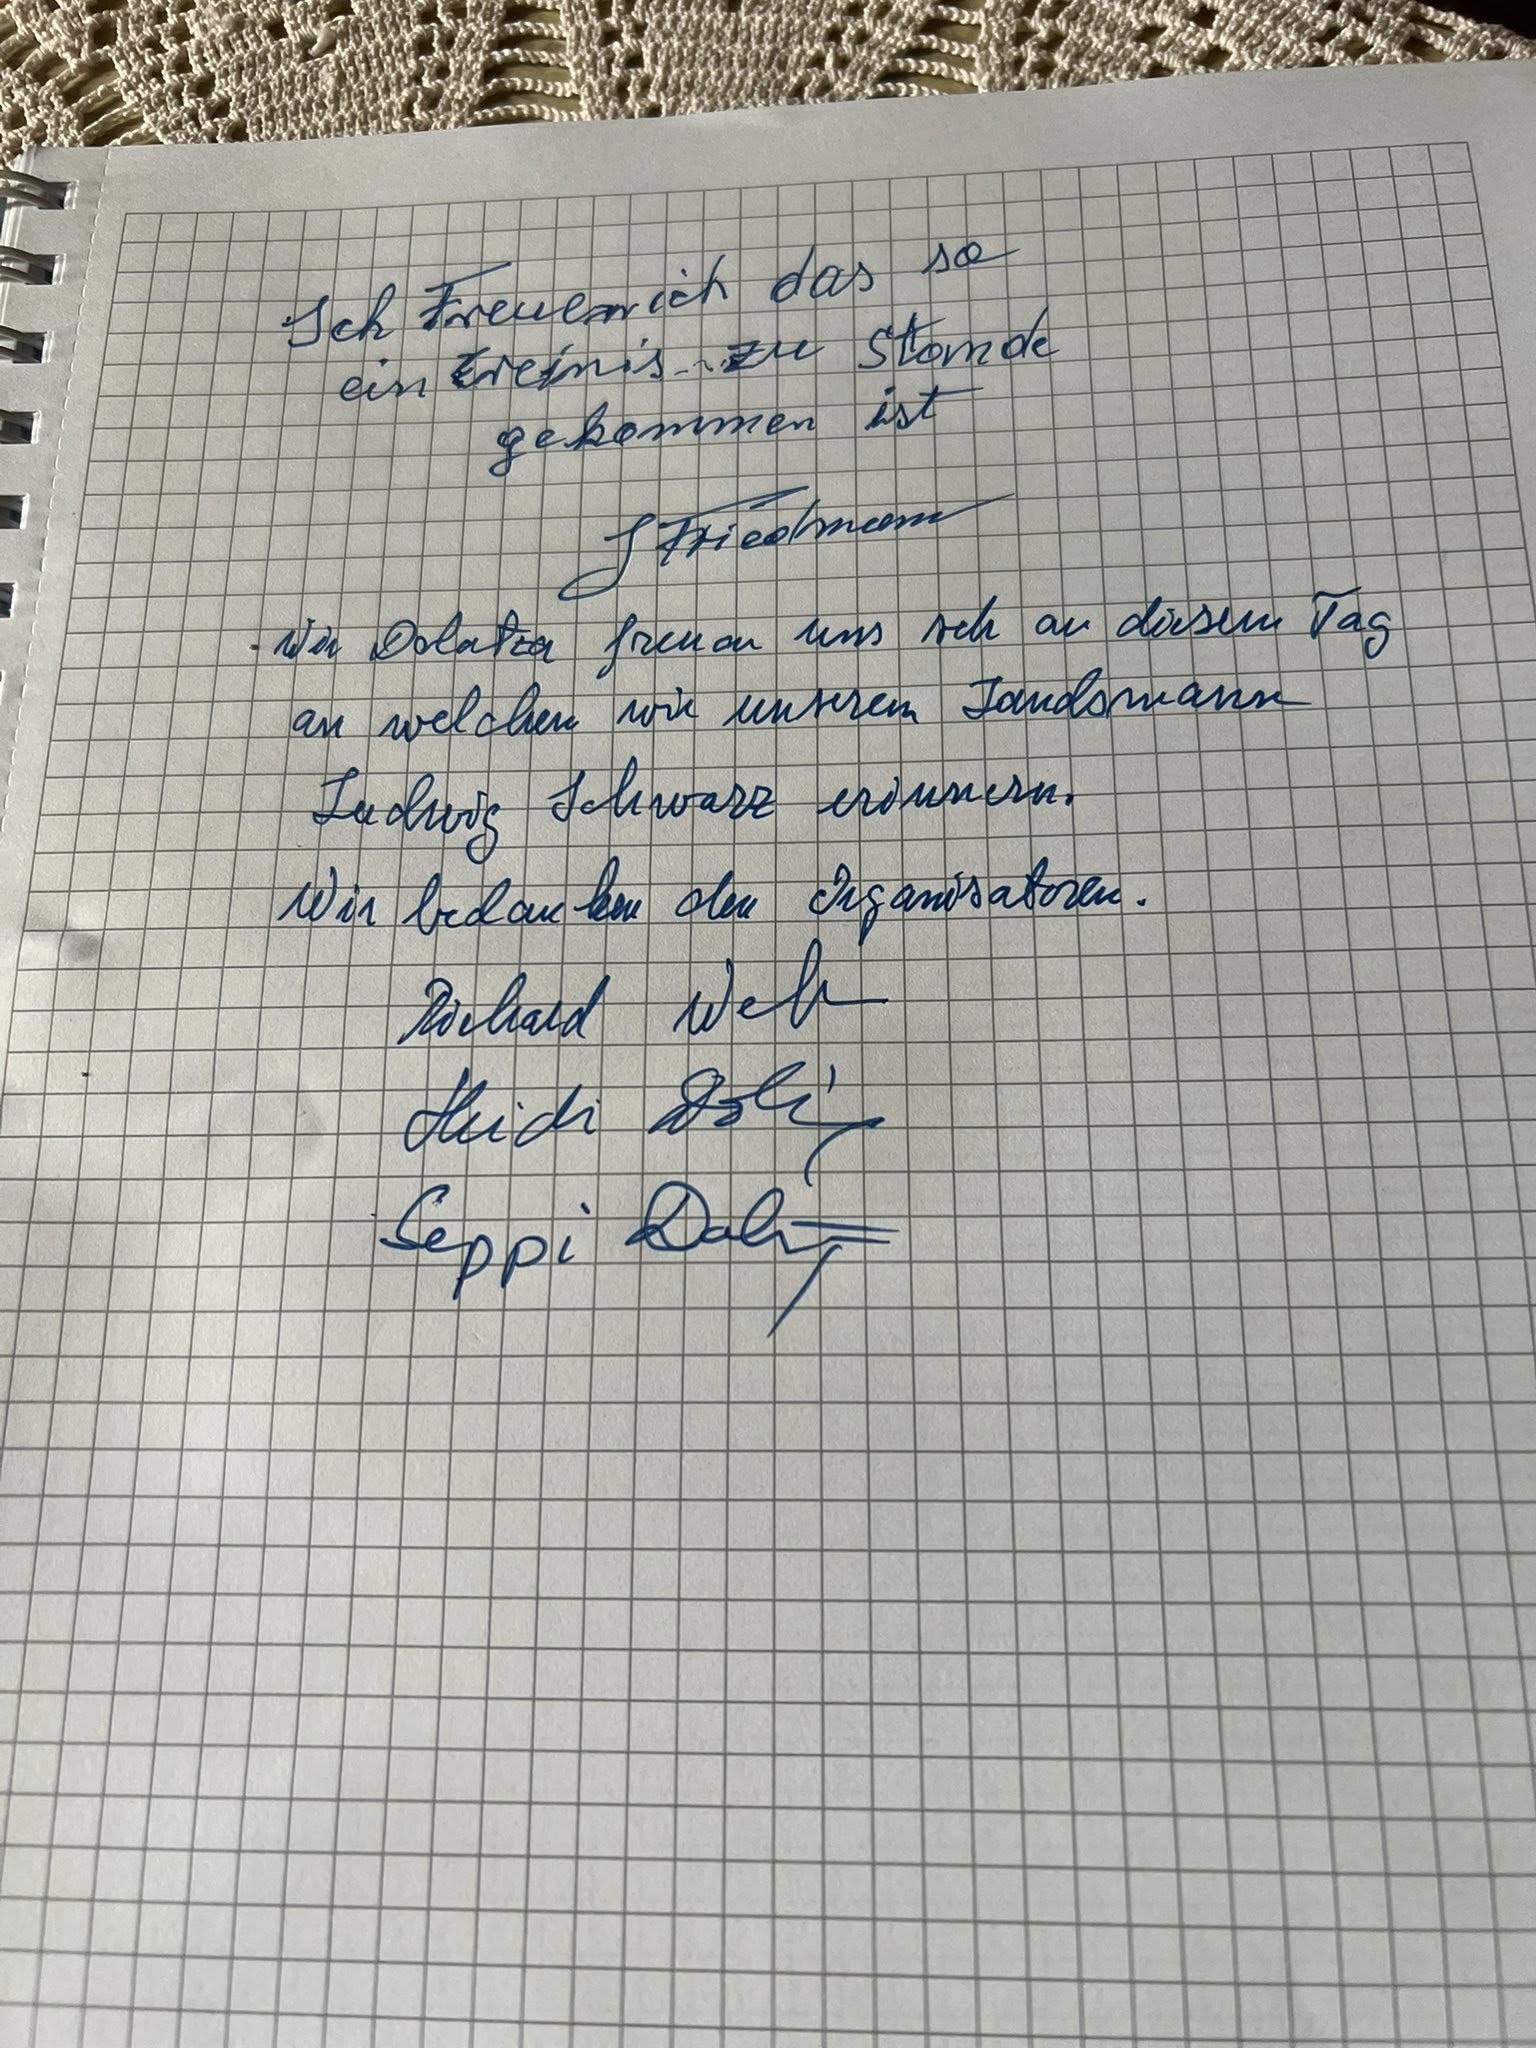 Ich Freue mich das so
ein Ereinis zu Stande
gekommen ist
J Friedmann
Wir Dolatza freuen uns sich an diesem Tag
an welchen wir unserem Landsmann
Ludwig Schwarz erinnern.
Wir bedanken den Organisatoren.
Richard
Heidi
Seppi